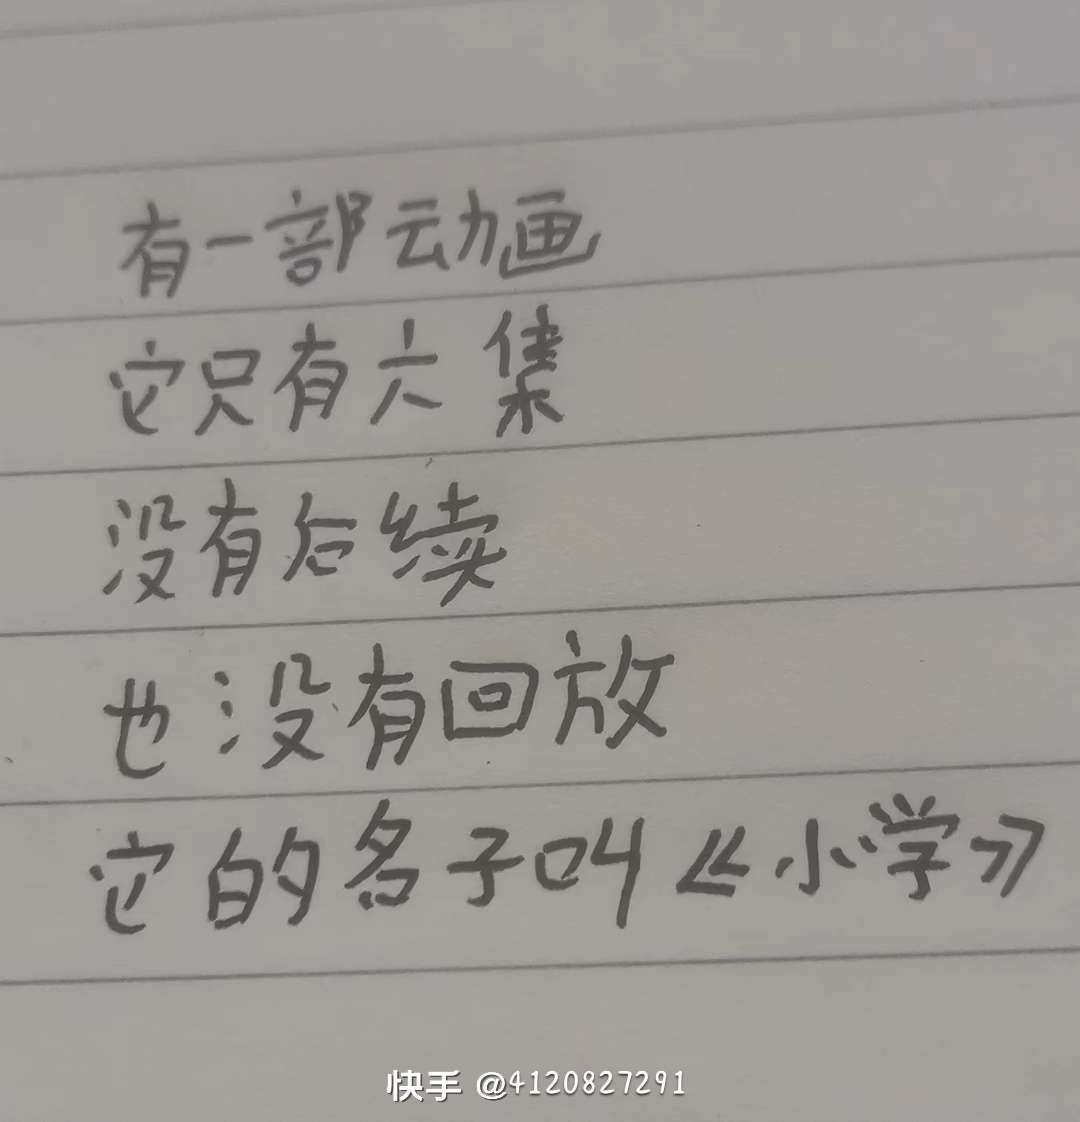 有一部动画
它只有六集
没有后续
也没有回放
它的名子叫《小学》
快手 @4120827291